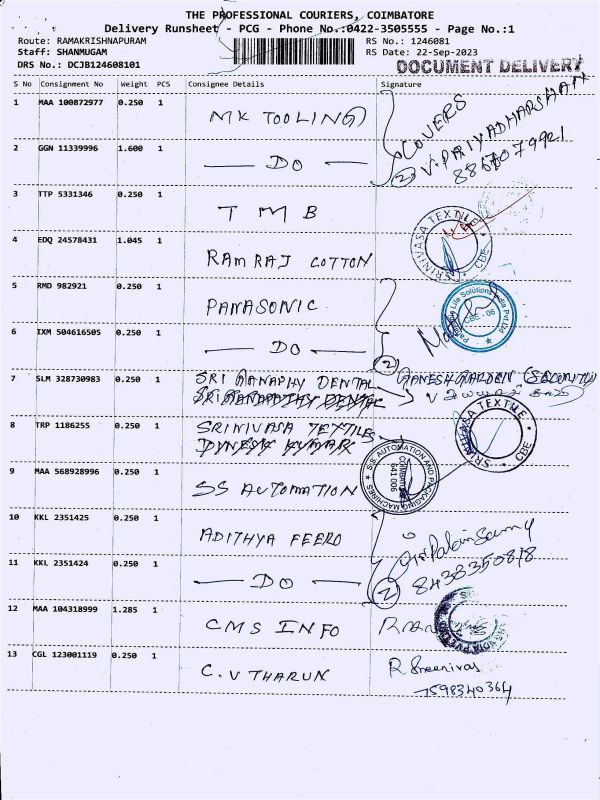 THE PROFESSIONAL COURIERS, COIMBATORE
Delivery Runsheet - PCG - Phone No.:0422-3505555 - Page No.:1
Route: RAMAKRISHNAPURAM RS No.: 1246081
Staff: SHANMUGAM RS Date: 22-Sep-2023
DRS No.: DCJB124608101 DOCUMENT DELIVERY
S No Consignment No Weight PCS Consignee Details Signature
1 MAA 100872977 0.250 1 MK TOOLING COVERS
V. PRIYADHARSHAN
2 GGN 11339996 1.600 1 DO 2 8867079921
3 TTP 5331346 0.250 1 TMB
SRINIVASA TEXTILE CBE
4 EDQ 24578431 1.045 1 RAMRAJ COTTON
5 RMD 982921 0.250 1 PANASONIC
Life Solutions India Pvt.Ltd
CBE - 06
6 IXM 504616505 0.250 1 DO 2
7 SLM 328730983 0.250 1 SRI GANAPHY DENTAL GANESH GARDEN (SECURITY)
SRI GANAPATHY DENTAL
8 TRP 1186255 0.250 1 SRINIVASA TEXTILES
SRINIVASA TEXTILE CBE
DYNESH KUMAR
9 MAA 568928996 0.250 1 SS AUTOMATION
S.S. AUTOMATION AND PACKAGING MACHINES
COIMBATORE
641 006
10 KKL 2351425 0.250 1 ADITHYA FEERO
11 KKL 2351424 0.250 1 DO 2 8438350818
12 MAA 104318999 1.285 1 CMS INFO
13 CGL 123001119 0.250 1 C.V THARUN R Sreenivas
7598340364